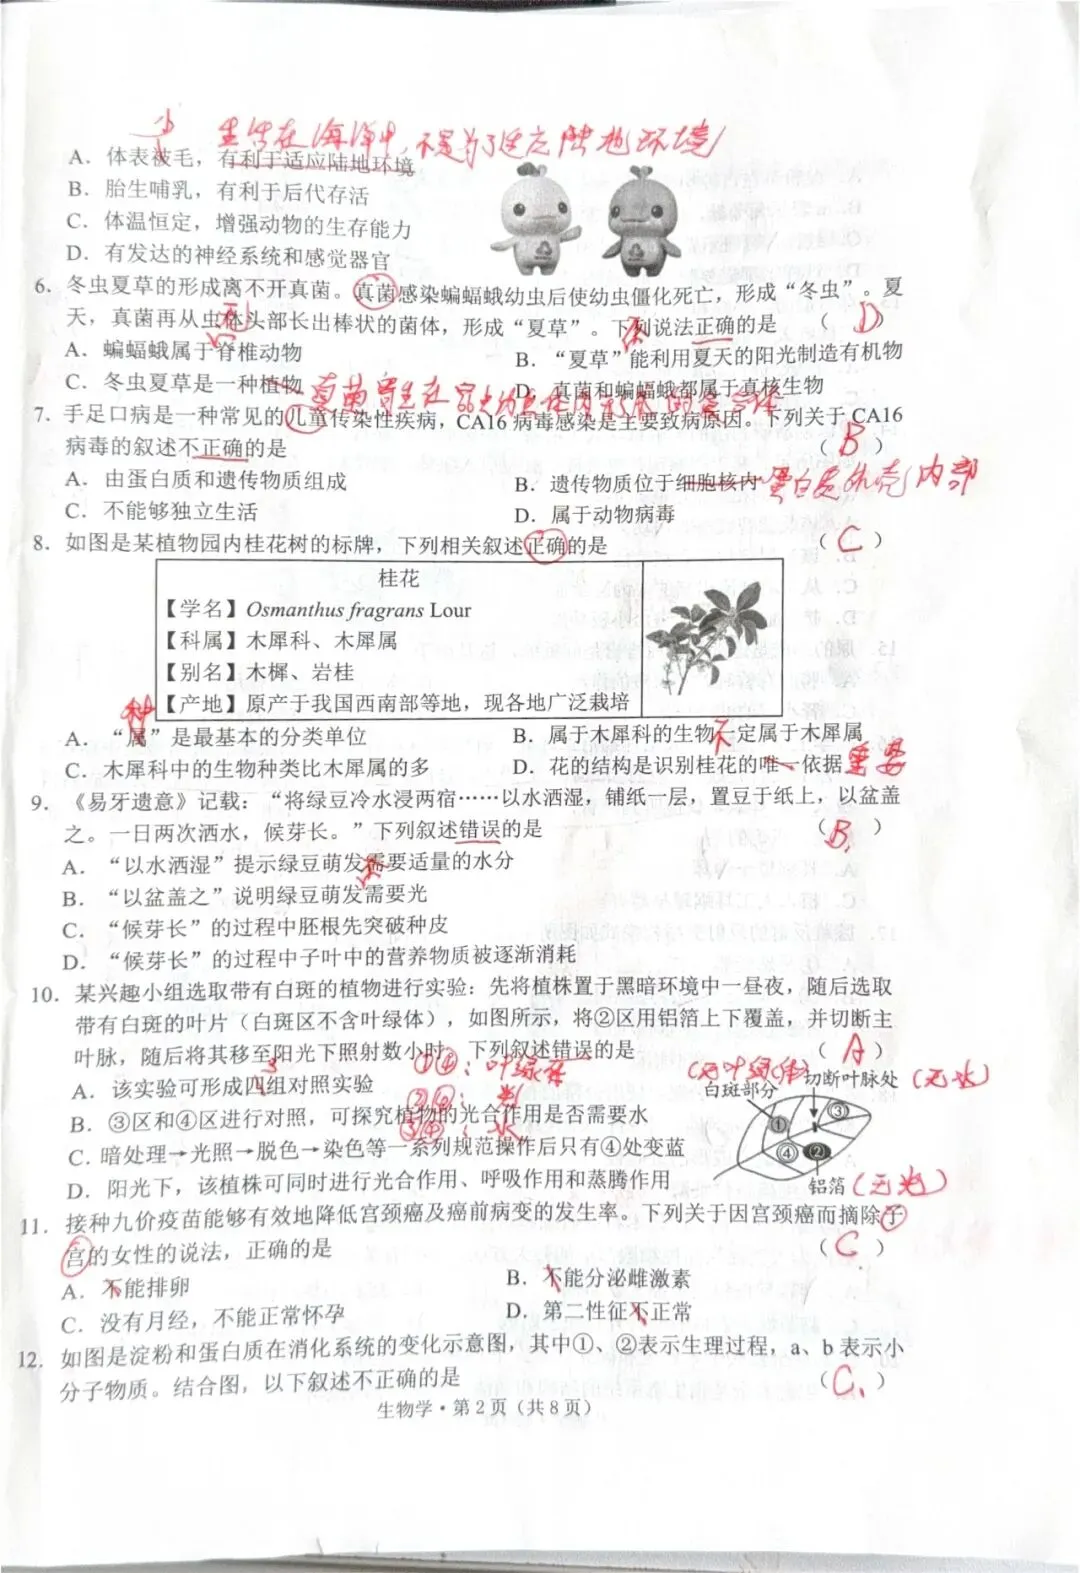 少 生活在海洋中,不是为了适应陆地环境
A. 体表被毛，有利于适应陆地环境
B. 胎生哺乳，有利于后代存活
C. 体温恒定，增强动物的生存能力
D. 有发达的神经系统和感觉器官
6. 冬虫夏草的形成离不开真菌。真菌感染蝙蝠蛾幼虫后使幼虫僵化死亡，形成“冬虫”。夏
天，真菌再从虫体头部长出棒状的菌体，形成“夏草”。下列说法正确的是 （ D ）
A. 蝙蝠蛾属于脊椎动物
B. “夏草”能利用夏天的阳光制造有机物
C. 冬虫夏草是一种植物
D. 真菌和蝙蝠蛾都属于真核生物
7. 手足口病是一种常见的儿童传染性疾病，CA16 病毒感染是主要致病原因。下列关于 CA16
病毒的叙述不正确的是 （ B ）
A. 由蛋白质和遗传物质组成
B. 遗传物质位于细胞核内 蛋白质外壳内部
C. 不能够独立生活
D. 属于动物病毒
8. 如图是某植物园内桂花树的标牌，下列相关叙述正确的是 （ C ）
桂花
【学名】Osmanthus fragrans Lour
【科属】木犀科、木犀属
【别名】木樨、岩桂
【产地】原产于我国西南部等地，现各地广泛栽培
种
A. “属”是最基本的分类单位
B. 属于木犀科的生物不一定属于木犀属
C. 木犀科中的生物种类比木犀属的多
D. 花的结构是识别桂花的唯一依据 重要
9. 《易牙遗意》记载：“将绿豆冷水浸两宿……以水洒湿，铺纸一层，置豆于纸上，以盆盖
之。一日两次洒水，候芽长。”下列叙述错误的是 （ B. ）
A. “以水洒湿”提示绿豆萌发需要适量的水分
不
B. “以盆盖之”说明绿豆萌发需要光
C. “候芽长”的过程中胚根先突破种皮
D. “候芽长”的过程中子叶中的营养物质被逐渐消耗
10. 某兴趣小组选取带有白斑的植物进行实验：先将植株置于黑暗环境中一昼夜，随后选取
带有白斑的叶片（白斑区不含叶绿体），如图所示，将②区用铝箔上下覆盖，并切断主
叶脉，随后将其移至阳光下照射数小时。下列叙述错误的是 （ A ）
①④：叶绿体
②④：光
③④：水
A. 该实验可形成四组对照实验
3
B. ③区和④区进行对照，可探究植物的光合作用是否需要水
C. 暗处理→光照→脱色→染色等一系列规范操作后只有④处变蓝
D. 阳光下，该植株可同时进行光合作用、呼吸作用和蒸腾作用
（无叶绿体）
白斑部分 切断叶脉处（无水）
① ③
④ ②
铝箔（无光）
11. 接种九价疫苗能够有效地降低宫颈癌及癌前病变的发生率。下列关于因宫颈癌而摘除子
宫的女性的说法，正确的是 （ C ）
A. 不能排卵
B. 不能分泌雌激素
C. 没有月经，不能正常怀孕
D. 第二性征不正常
12. 如图是淀粉和蛋白质在消化系统的变化示意图，其中①、②表示生理过程，a、b 表示小
分子物质。结合图，以下叙述不正确的是 （ C. ）
生物学·第 2 页（共 8 页）